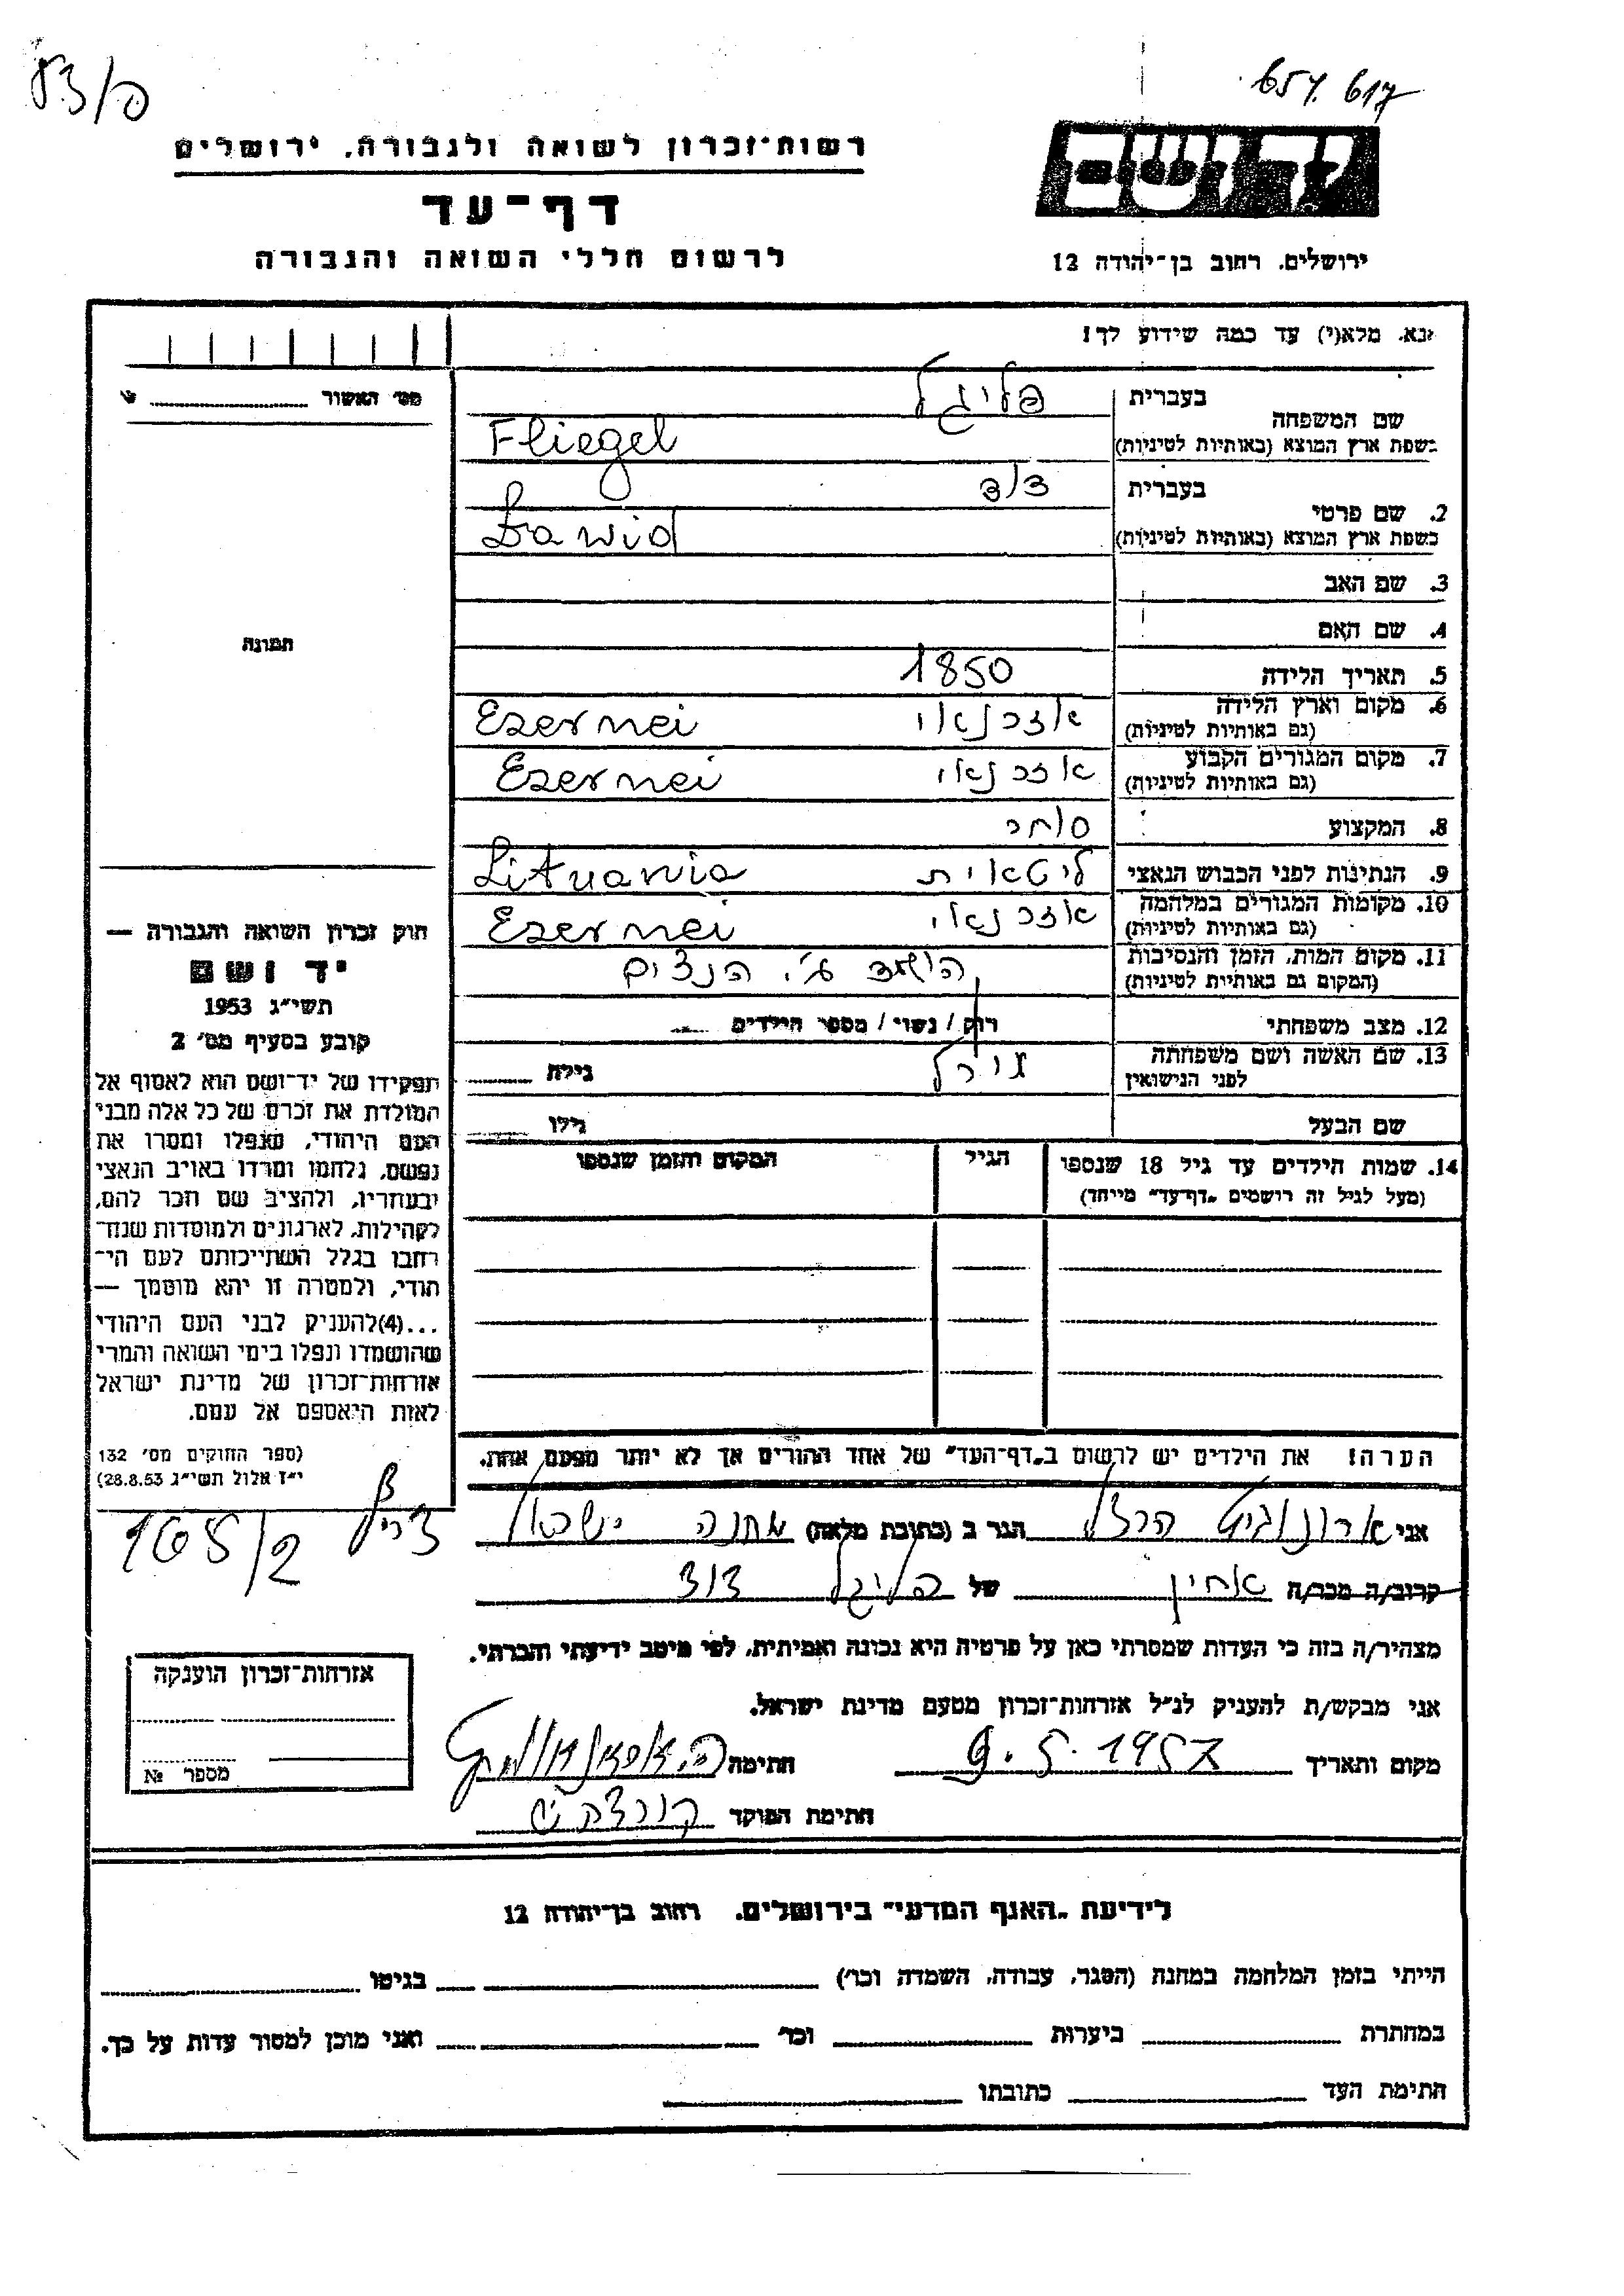 פ/83
657.617
רשות־זכרון לשואה ולגבורה, ירושלים
דף־עד
לרשום חללי השואה והגבורה
יד ושם
ירושלים, רחוב בן־יהודה 12
נא, מלא(י) עד כמה שידוע לך!
מס׳ האשור
שם המשפחה
בעברית פליגל
בשפת ארץ המוצא (באותיות לטיניות) Fliegel
2. שם פרטי
בעברית דוד
בשפת ארץ המוצא (באותיות לטיניות) Dawid
3. שם האב
4. שם האם
תמונה
5. תאריך הלידה 1850
6. מקום וארץ הלידה (גם באותיות לטיניות) אזרנאי Esernei
7. מקום המגורים הקבוע (גם באותיות לטיניות) אזרנאי Esernei
8. המקצוע סוחר
9. הנתינות לפני הכבוש הנאצי ליטאית Lituania
10. מקומות המגורים במלחמה (גם באותיות לטיניות) אזרנאי Esernei
11. מקום המות, הזמן והנסיבות (המקום גם באותיות לטיניות) הושמד ע״י הנצים
12. מצב משפחתי רווק / נשוי / מספר הילדים
13. שם האשה ושם משפחתה לפני הנישואין גילה
שם הבעל גילו
14. שמות הילדים עד גיל 18 שנספו
(מעל לגיל זה רושמים „דף־עד״ מייחד)
הגיל
המקום והזמן שנספו
חוק זכרון השואה והגבורה —
יד ושם
תשי״ג 1953
קובע בסעיף מס׳ 2
תפקידו של יד־ושם הוא לאסוף אל
המולדת את זכרם של כל אלה מבני
העם היהודי, שנפלו ומסרו את
נפשם, נלחמו ומרדו באויב הנאצי
ובעוזריו, ולהציב שם וזכר להם,
לקהילות, לארגונים ולמוסדות שנח־
רבו בגלל השתייכותם לעם הי־
הודי, ולמטרה זו יהא מוסמך —
...(4)להעניק לבני העם היהודי
שהושמדו ונפלו בימי השואה והמרי
אזרחות־זכרון של מדינת ישראל
לאות היאספם אל עמם.
(ספר החוקים מס׳ 132
י״ז אלול תשי״ג 28.8.53)
הערה! את הילדים יש לרשום ב„דף־העד״ של אחד ההורים אך לא יותר מפעם אחת.
אני ארונוביץ הרצל הגר ב (כתובת מלאה) מחנה ישראל צריף 165/2
קרוב/ה מכר/ה אחין של פליגל דוד
מצהיר/ה בזה כי העדות שמסרתי כאן על פרטיה היא נכונה ואמיתית, לפי מיטב ידיעתי והכרתי.
אני מבקש/ת להעניק לנ״ל אזרחות־זכרון מטעם מדינת ישראל.
מקום ותאריך 9.5.1957 חתימה
חתימת הפוקד
אזרחות־זכרון הוענקה
מספר №
לידיעת „האגף המדעי״ בירושלים, רחוב בן־יהודה 12
הייתי בזמן המלחמה במחנה (הסגר, עבודה, השמדה וכו׳) בגיטו
במחתרת ביערות וכו׳ ואני מוכן למסור עדות על כך.
חתימת העד כתובתו